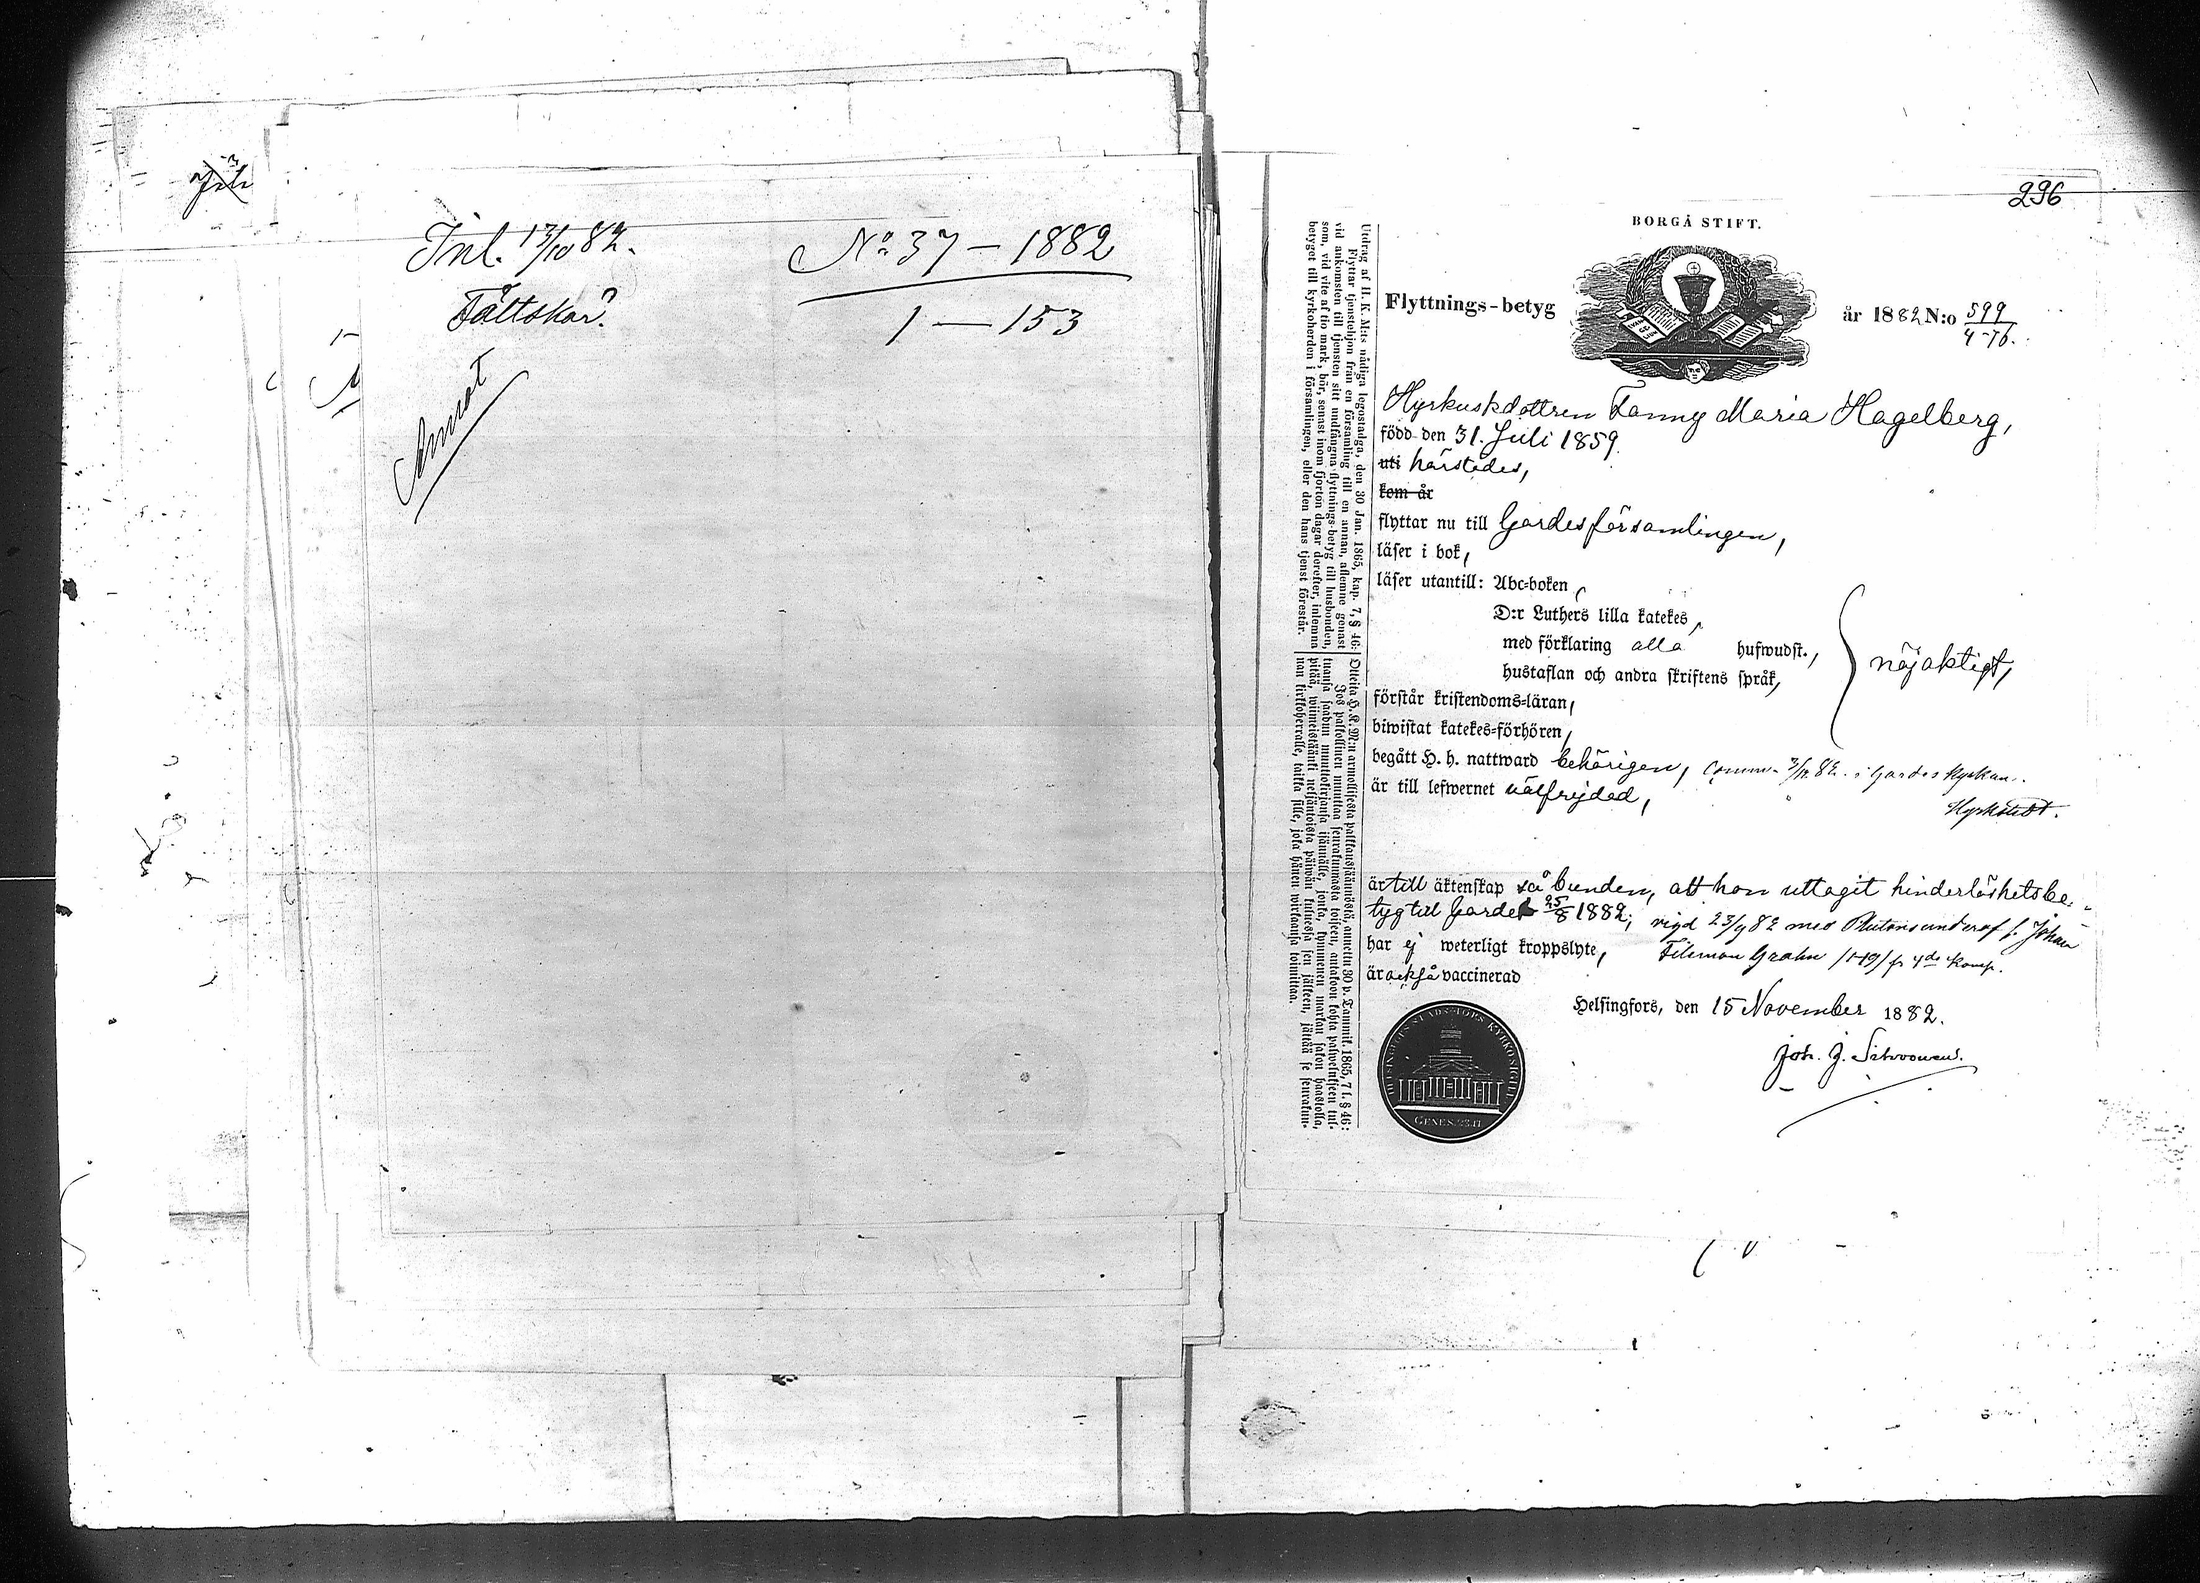 Inl. 13/10 82.
Fältskär.
No 37 – 1882
1 — 153
296
BORGÅ STIFT.
Flyttnings-betyg år 1882 N:o 599
4-76.
Hyrkuskdottren Fanny Maria Hagelberg,
född den 31. Juli 1859.
uti härstädes,
kom år
flyttar nu till Gardesförsamlingen,
läser i bok,
läser utantill: Abc-boken,
D:r Luthers lilla katekes,
med förklaring alla hufwudst.,
hustaflan och andra skriftens språk,
nöjaktigt,
förstår kristendoms-läran,
biwistat katekes-förhören,
begått H. h. nattward behörigen, comm. 3/12 82. i Gardes kyrkan.
är till lefwernet välfrejdad,
är till äktenskap så bunden, att hon uttagit hinderlöshetsbe-
tyg till Gardet 25/8 1882; vigd 23/9 82 med Plutonsunderof f. Johan
har ej weterligt kroppslyte, Filemon Grahn /119/ fr 4de Komp.
är också vaccinerad
Helsingfors, den 15 November 1882.
HELSINGFORS STADS-FÖRS KYRKOSIGILL
GENES. 28.17.
Utdrag af H. K. M:ts nådiga legostadga, den 30 Jan. 1865, kap. 7, § 46:
Flyttar tjenstehjon från en församling till en annan, aflemne genast
vid ankomsten till tjensten sitt undfångna flyttnings-betyg till husbonden,
som, vid vite af tio mark, bör, senast inom fjorton dagar derefter, inlemna
betyget till kyrkoherden i församlingen, eller den hans tjenst förestår.
Otteita H. K. M:n armollisesta palkkaussäännöstä, annettu 30 p. Tammik. 1865, 7 l. § 46:
Jos palkollinen muuttaa seurakunnasta toiseen, antakoon kohta palwelukseen tul-
tuansa saadun muuttokirjansa isännälle, jonka, kymmenen markan sakon haastolla,
pitää, wiimeistäänki neljäntoista päiwän kuluessa sen jälkeen, jättää se seurakun-
nan kirkkoherralle, taikka sille, joka hänen wirkaansa toimittaa.